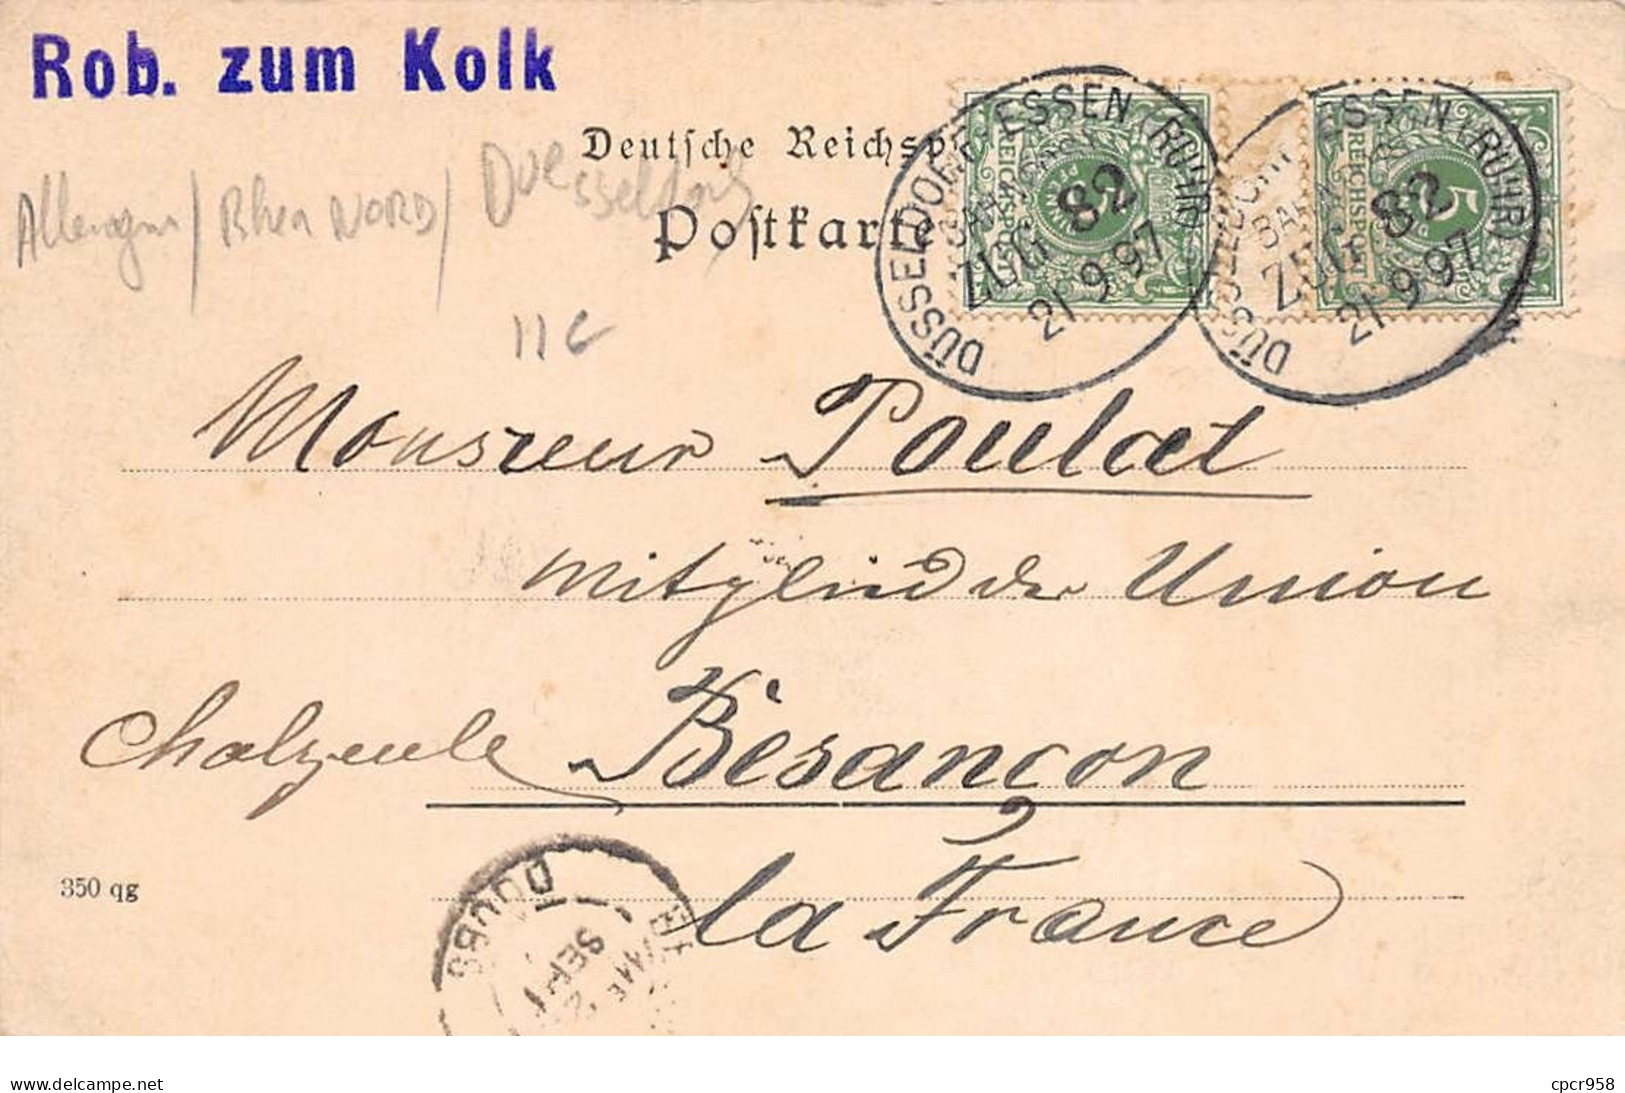 Rob. zum Kolk
Deutsche Reichsp
Postkarte
Allemagne / Rhen NORD / Duesseldorf
11€
DÜSSELDORF-ESSEN (RUHR)
BAHNPOST
ZUG 82
21 9 97
DÜSSELDORF-ESSEN (RUHR)
ZUG 82
21 9 97
REICHSPOST
5
Monsieur Poulat
Mitglied der Union
Bèsançon
la France
350 qg
DOUBS
SEPT
cpcr958